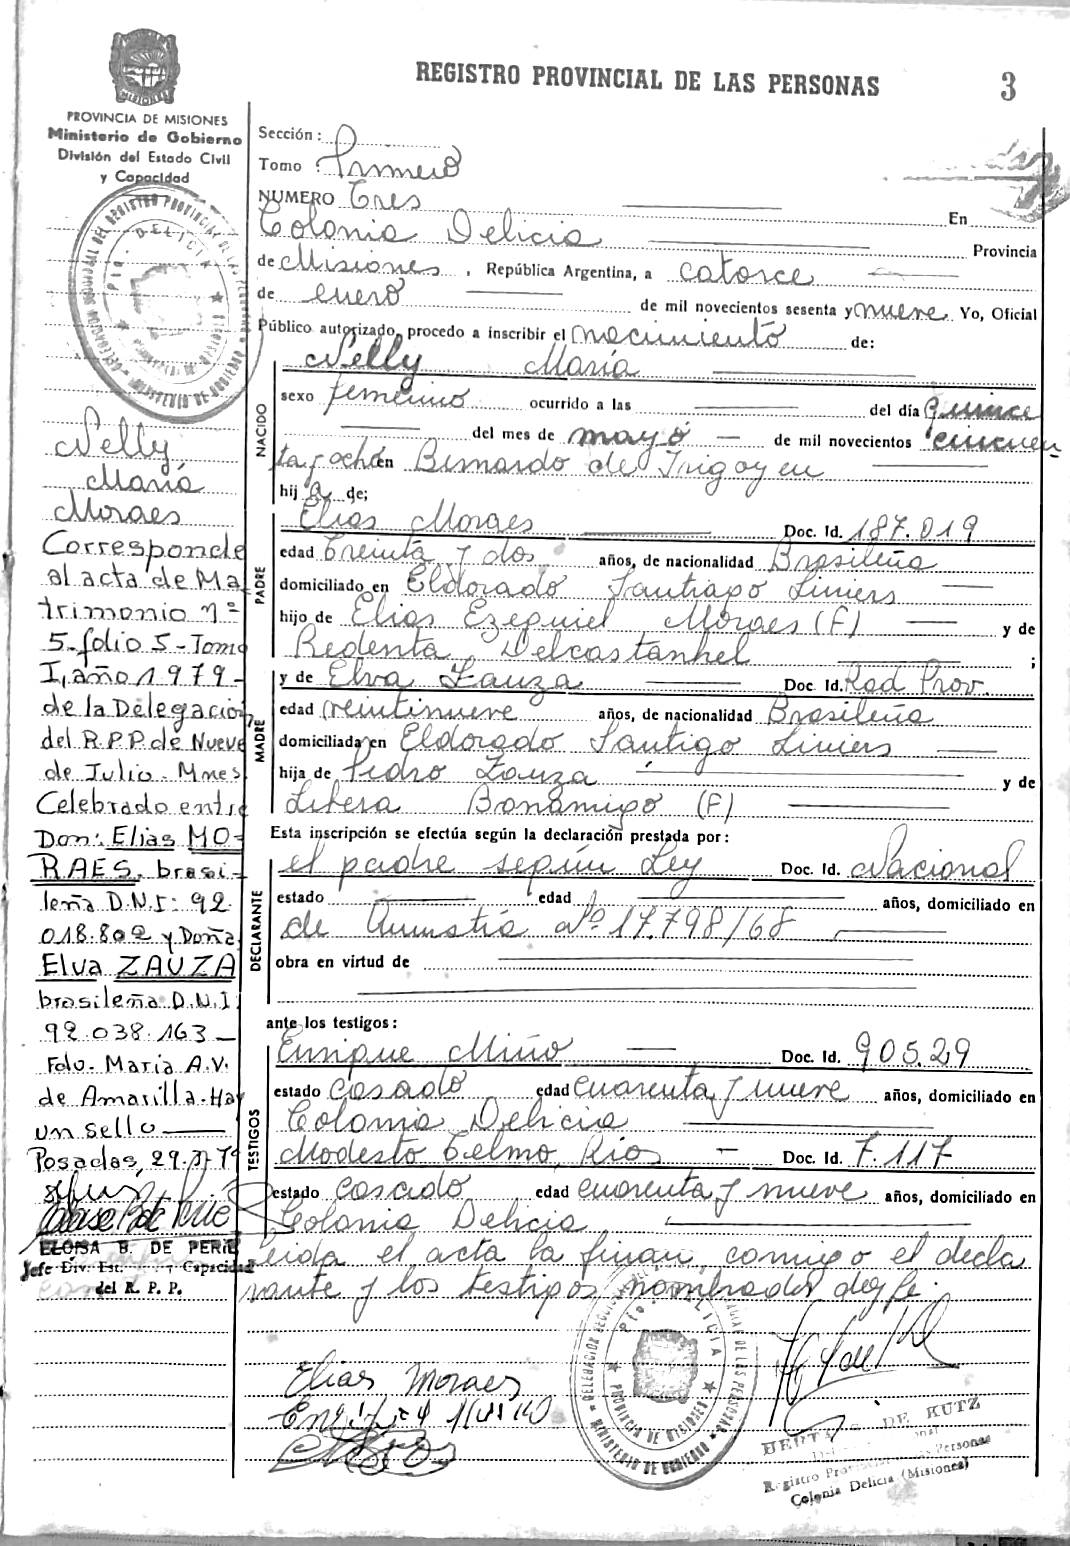 REGISTRO PROVINCIAL DE LAS PERSONAS
3
MISIONES
PROVINCIA DE MISIONES
Ministerio de Gobierno
División del Estado Civil
y Capacidad
Sección :
Tomo : Primero
NUMERO Tres
En
Colonia Delicia
Provincia
de Misiones , República Argentina, a catorce
de enero de mil novecientos sesenta y nueve Yo, Oficial
Público autorizado, procedo a inscribir el nacimiento de:
NACIDO
Nelly María
sexo femenino ocurrido a las del día quince
del mes de mayo de mil novecientos cincuen
ta y ocho en Bernardo de Irigoyen
hij a de;
PADRE
Elías Moraes Doc. Id. 187.019
edad treinta y dos años, de nacionalidad Brasileña
domiciliado en Eldorado Santiago Liniers
hijo de Elias Ezequiel Moraes (F) y de
Redenta Delcastanhel ;
MADRE
y de Elva Zauza Doc. Id. Rad Prov.
edad veintinueve años, de nacionalidad Brasileña
domiciliada en Eldorado Santigo Liniers
hija de Pedro Zauza y de
Libera Bonamigo (F)
Esta inscripción se efectúa según la declaración prestada por:
DECLARANTE
el padre según Ley Doc. Id. Nacional
estado edad años, domiciliado en
de Amnistía Nº 17.798/68
obra en virtud de
ante los testigos:
TESTIGOS
Enrique Miño Doc. Id. 905.29
estado casado edad cuarenta y nueve años, domiciliado en
Colonia Delicia
Modesto Telmo Rios Doc. Id. 7.117
estado casado edad cuarenta y nueve años, domiciliado en
Colonia Delicia
Leida el acta la firman conmigo el decla
rante y los testigos nombrados doy fe.
Elias Moraes
Nelly
María
Moraes
Corresponde
al acta de Ma
trimonio nº
5-folio 5-Tomo
I, año 1979-
de la Delegación
del R.P.P. de Nueve
de Julio- Mnes
Celebrado entre
Don: Elias MO-
RAES, brasi-
leña D.N.I: 92.
018.802 y Doña
Elva ZAUZA
brasileña D.N.I.
92.038.163-
Fdo. Maria A.V.
de Amarilla-Hay
un sello
Posadas, 29.
ELOISA B. DE PERIE
Jefe Div. Est. y Capacidad
del R. P. P.
DE KUTZ
Registro Personas
Colonia Delicia (Misiones)
PROVINCIA DE MISIONES
MINISTERIO DE GOBIERNO